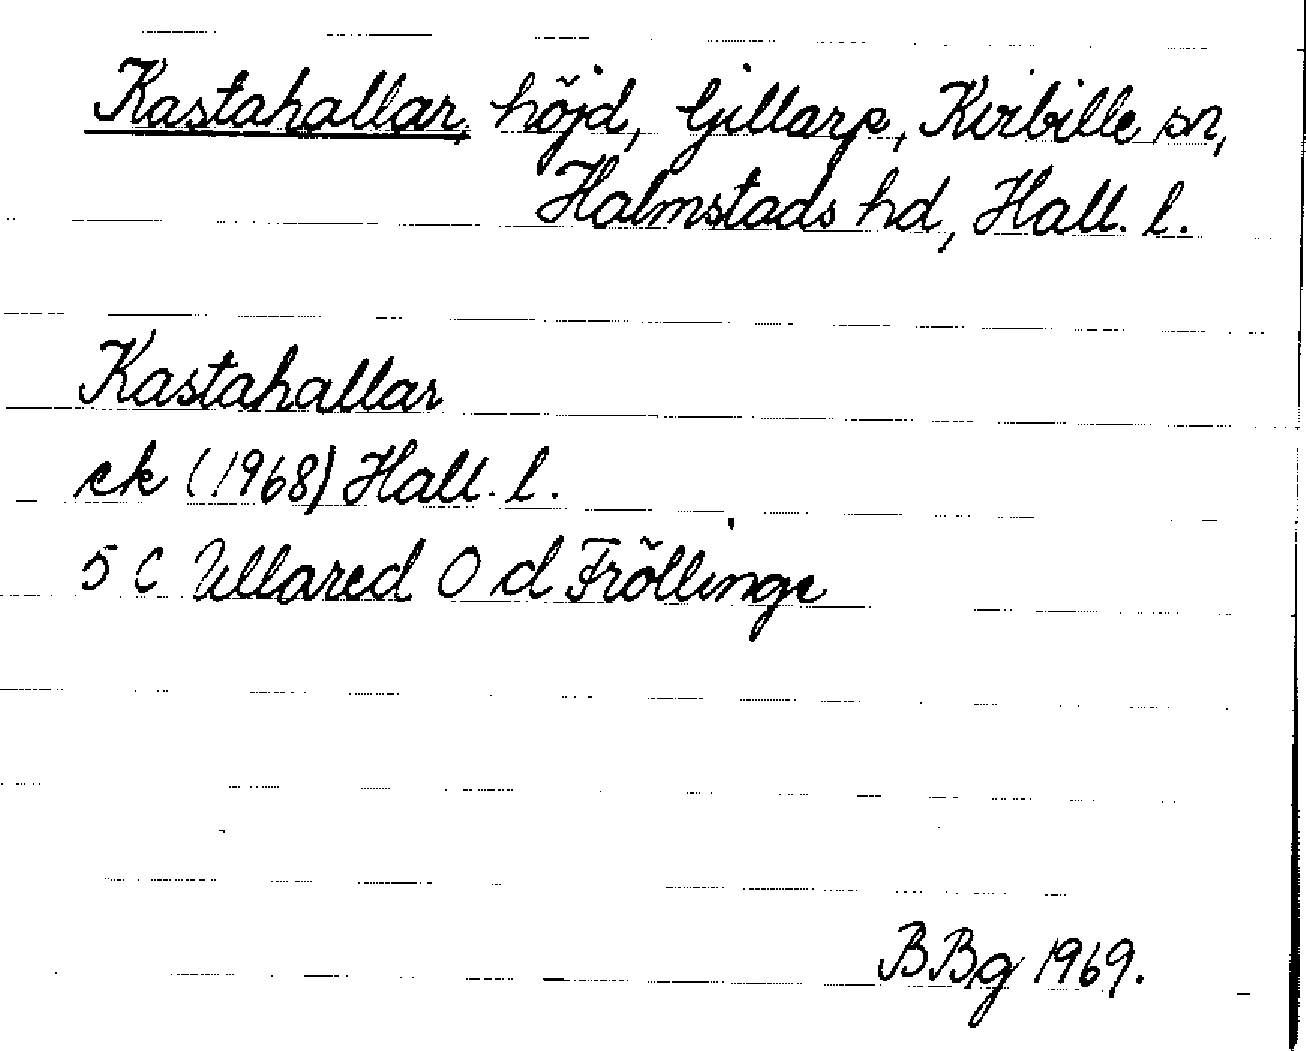 Kastahallar, höjd, Gillarp, Kvibille sn,
Halmstads hd, Hall. l.
Kastahallar
ek (1968) Hall. l.
5 C Ullared O d Fröllinge
BBg 1969.